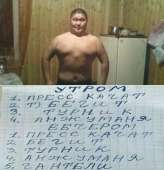 УТРОМ
1. ПРЕСС КАЧАТ
2. ТЗ БЕГИТ
3. ТУРНИК
4. АНЖУМАНЯ
ВЕЧЕРОМ
1. ПРЕСС КАЧАТ
2. БЕГИТ
3. ТУРНИК
4. АНЖУМАНЯ
5. ГАНТЕЛИ